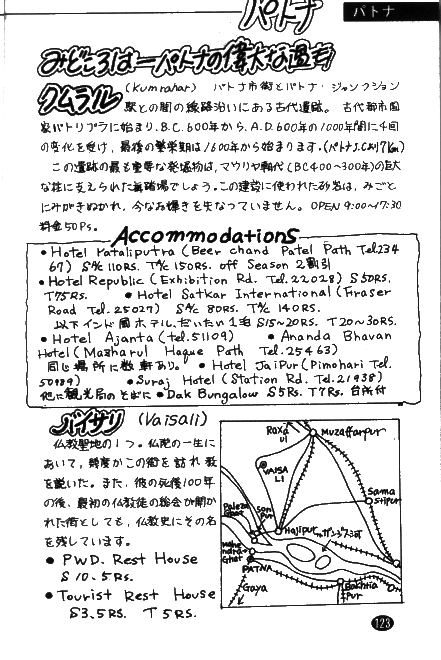 パトナ
パトナ
みどころは―パトナの偉大な過去
クムラル
(Kumrahar) パトナ市街とパトナ・ジャンクション
駅との間の線路沿いにある古代遺跡。 古代都市国
家パトリプラに始まり、B.C.600年から、A.D.600年の1000年間に4回
の変化を受け、最後の繁栄期は1600年から始まります。(パトナJ.Cより7km)
この遺跡の最も重要な発掘物は、マウリヤ朝代(BC400〜300年)の巨大
な柱に支えられた集会場でしょう。この建営に使われた砂岩は、みごと
にみがきぬかれ、今なお輝きを失なっていません。OPEN 9:00〜17:30
料金50Ps.
Accommodations
• Hotel Pataliputra (Beer chand Patel Path Tel.234
67) S A/c 110RS. T A/c 150RS. off Season 2割引
• Hotel Republic (Exhibition Rd. Tel.22028) S50RS.
T75RS. • Hotel Satkar International (Fraser
Road Tel.25027) S A/c 80RS. T A/c 140RS.
以下インド国ホテル、だいたい1泊 S15〜20RS. T20〜30RS.
• Hotel Ajanta (tel.51109) • Ananda Bhavan
Hotel (Mazharul Haque Path Tel.25463)
同じ場所に数軒あり。 • Hotel JaiPur (Pimohari Tel.
50989) • Suraj Hotel (Station Rd. Tel.21938)
他に観光局のそばに • Dak Bungalow S5RS. T7RS. 台所付
バイサリ (Vaisali)
仏教聖地の1つ。仏陀の一生に
おいて、幾度かこの街を訪れ教
を説いた。また、彼の死後100年
の後、最初の仏教徒の総会が開か
れた街としても、仏教史にその名
を残しています。
• PWD. Rest House
S10.5RS.
• Tourist Rest House
S3.5RS. T5RS.
Raxaul
Muzaffarpur
VAISALI
Samastipur
Paleza Ghat
Sonpur
Hajipur
ガンジス河
Mahendra Ghat
PATNA
Gaya
Bakhtiapur
123